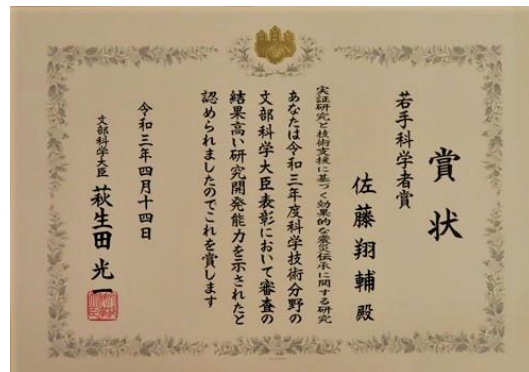 賞状
若手科学者賞
佐藤翔輔殿
実証研究と技術支援に基づく効果的な震災伝承に関する研究
あなたは令和三年度科学技術分野の
文部科学大臣表彰において審査の
結果高い研究開発能力を示されたと
認められましたのでこれを賞します
令和三年四月十四日
文部科学大臣 萩生田光一